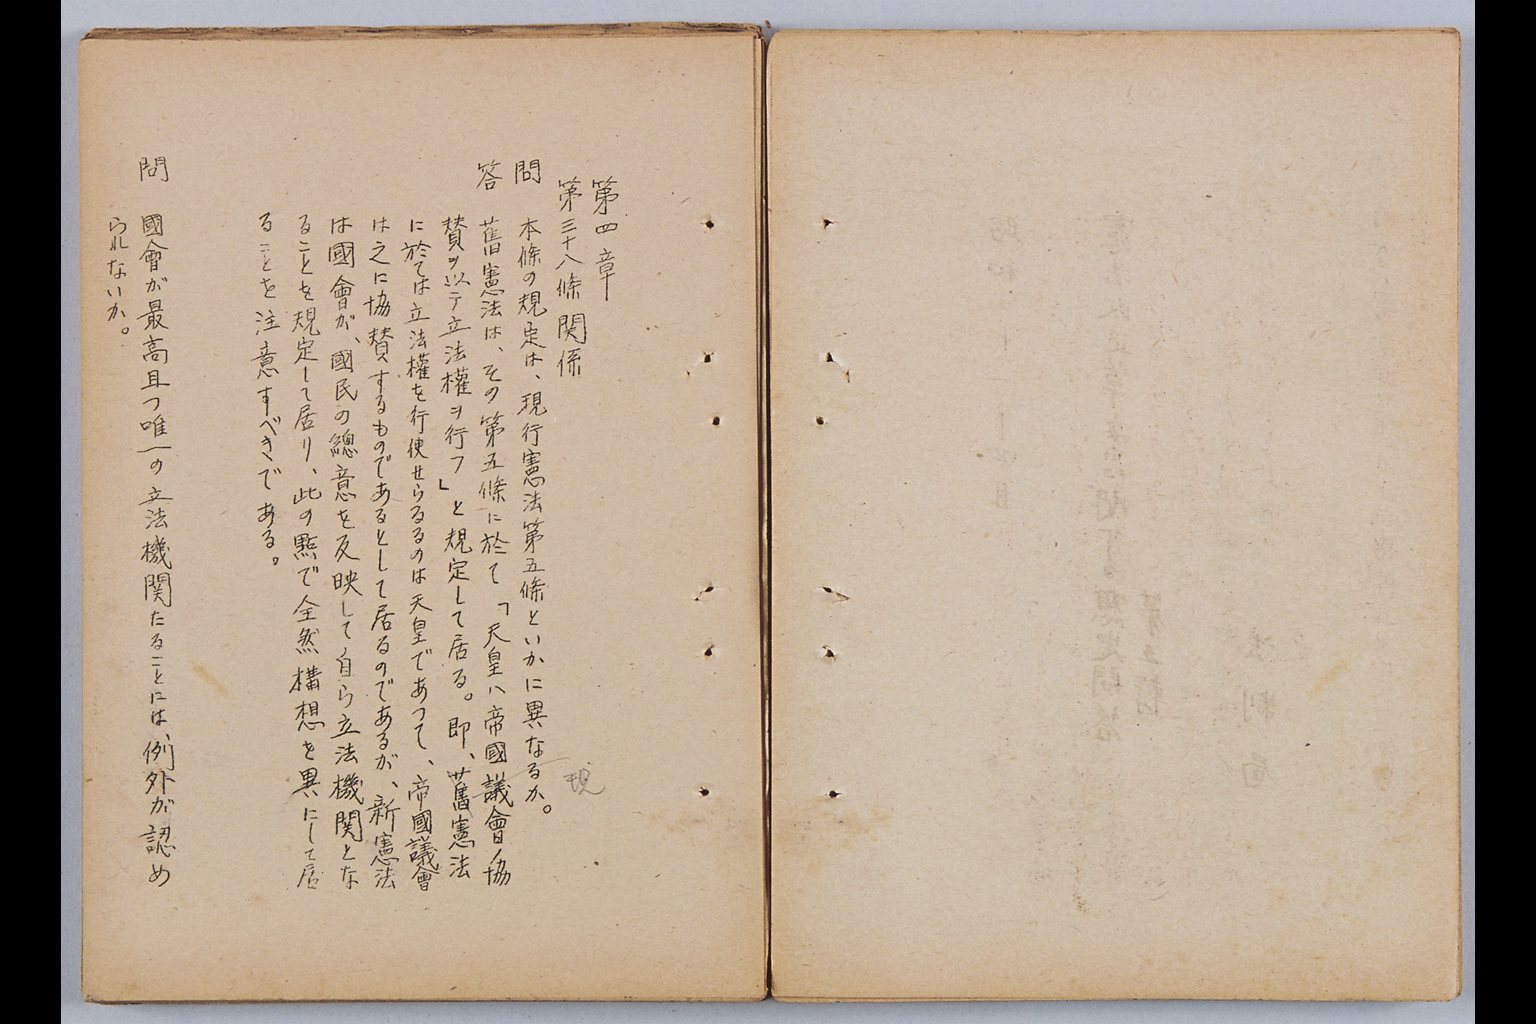 第四章
第三十八條関係
問 本條の規定は、現行憲法第五條といかに異なるか。
答 舊憲法は、その第五條に於て「天皇ハ帝國議會ノ協
賛ヲ以テ立法權ヲ行フ」と規定して居る。即、舊憲法
に於ては立法權を行使せらるるのは天皇であつて、帝國議會
は之に協賛するものであるとして居るのであるが、新憲法
は國會が、國民の總意を反映して自ら立法機関とな
ることを規定して居り、此の點で全然構想を異にして居
ることを注意すべきである。
問 國會が最高且つ唯一の立法機関たることには、例外が認め
られないか。
現